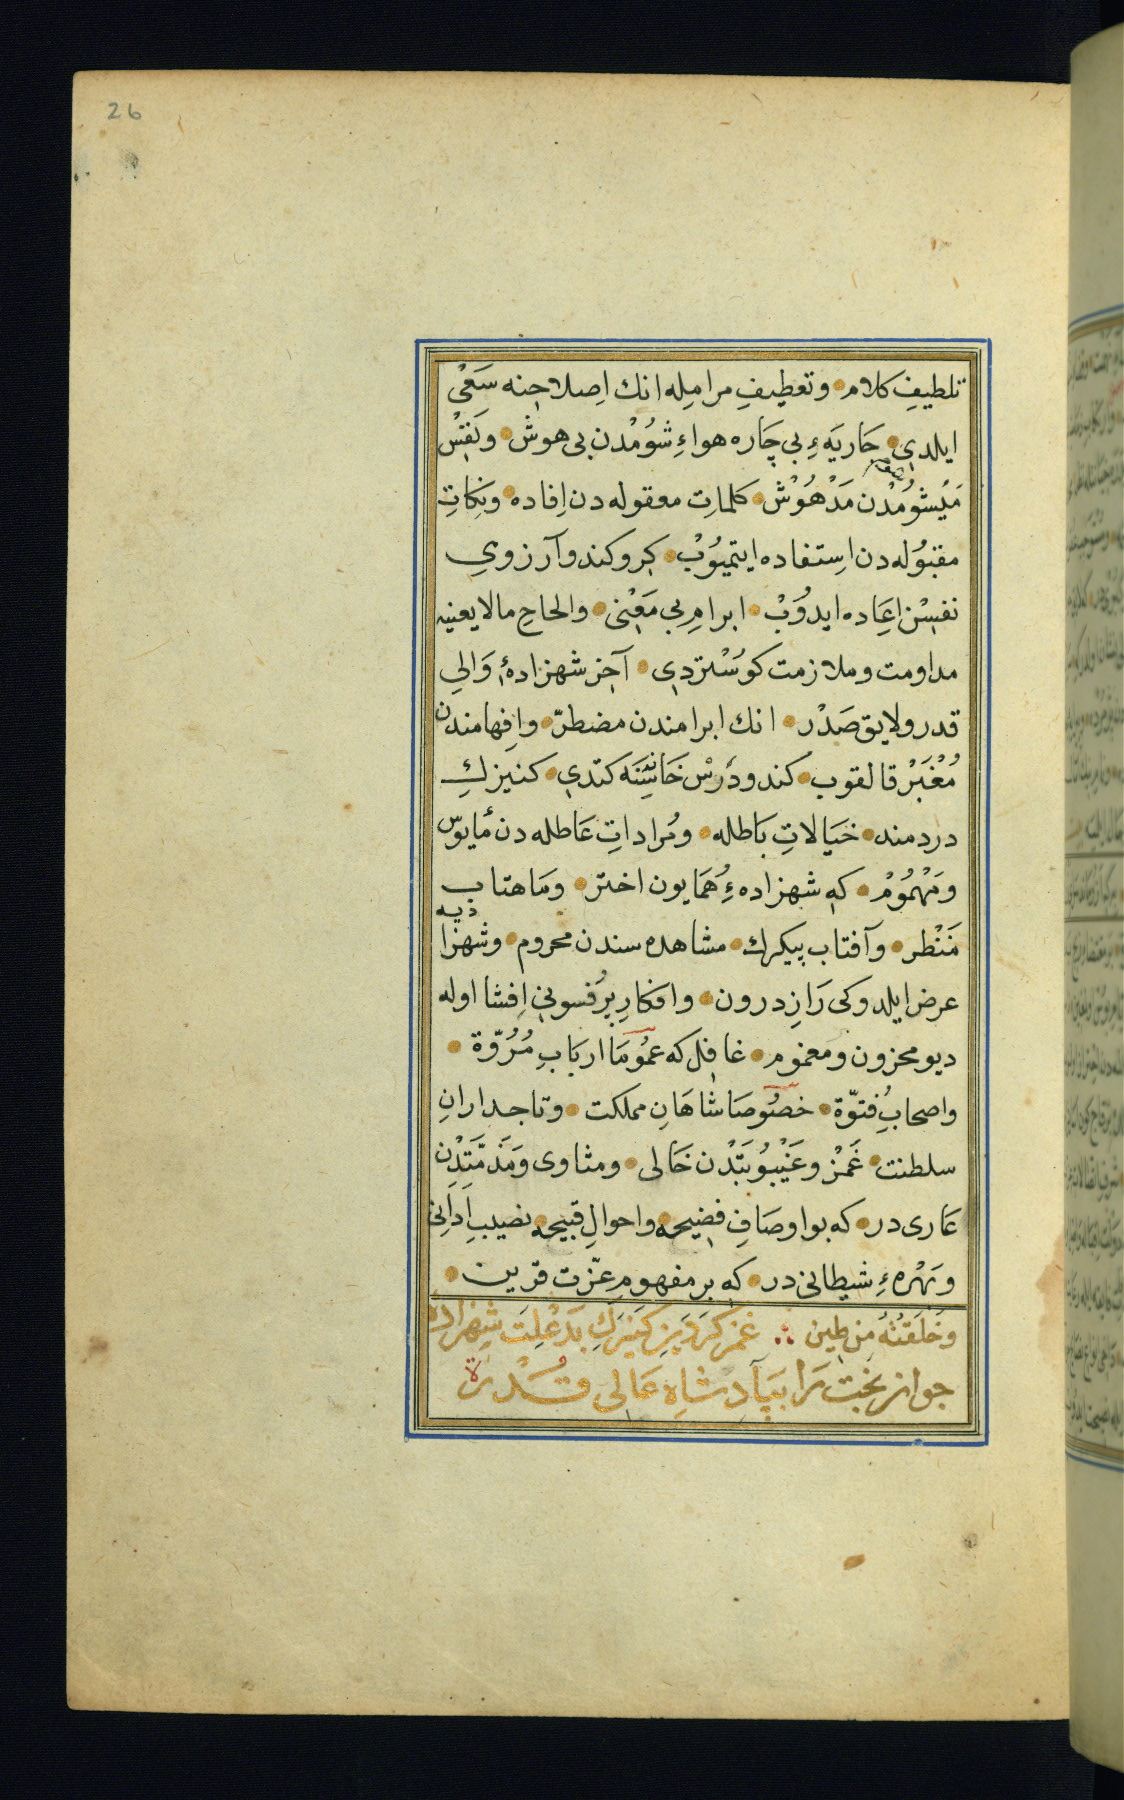 26
تلطيفِ كلام • وتعطيفِ مراميله انك اِصلاحنه سَعْى
ايلدى • جَاريَهءِ بى چَاره هواءِ شُومُدْن بى هوش • ونَفسْ
مَيْشُومُدن مَدْهُوْش • كلماتِ معقوله دن اِفاده • ونِكاتِ
مقبُوله دن اِستفاده ايتميُوبْ • كرو كندو آرزوىِ
نفسْن اِعَاده ايدُوبْ • ابرامِ بى مَعْنى • والحاحِ مالايعنيه
مداومت وملازمت كوسْتردى • آخر شهزادهٔ وَالىِ
قدر ولايق صَدْر • انك ابرامندن مضطرّ • وافهامندن
مُغْبَرْ قالقوب • كندو دَرسْ خَانَسْنَه كتدى • كنيزكِ
دردمند • خيَالاتِ بَاطله • ومُراداتِ عَاطله دن مأيوس
ومَهْمُوْمْ • كه شهزاده ءِ هُمَايون اختر • ومَاهتاب
مَنْظر • وآفتاب پيكرك • مشاهده سندن محروم • وشهزا
ديه
عرض ايلدوكى رَازِ درون • وافكارِ پرُفسونى اِفشا اوله
ديو محزون ومعموم • غافل كه عمُومَا اربَابِ مُرُوّة •
واصحابِ فتوّة • خصُوصَا شاهَانِ مملكت • وتاجدارانِ
سلطنت • غَمزْ وعَيْبُوبَتْدن خَالى • ومثاوى ومَذمّتدن
عَارى در • كه بو اوصَافِ فضيحه • واحوالِ قبيحه • نصيبِ اِدَانى
وبَهْرهءِ شيطانى در • كه بر مفهومِ عزّت قرين •
وَخَلَقْتَهُ مِن طين ∴ غمز كردنِ كنيزك بدعلت شهزاده
جوانبخت را بپادشاه عالى قُدْرة